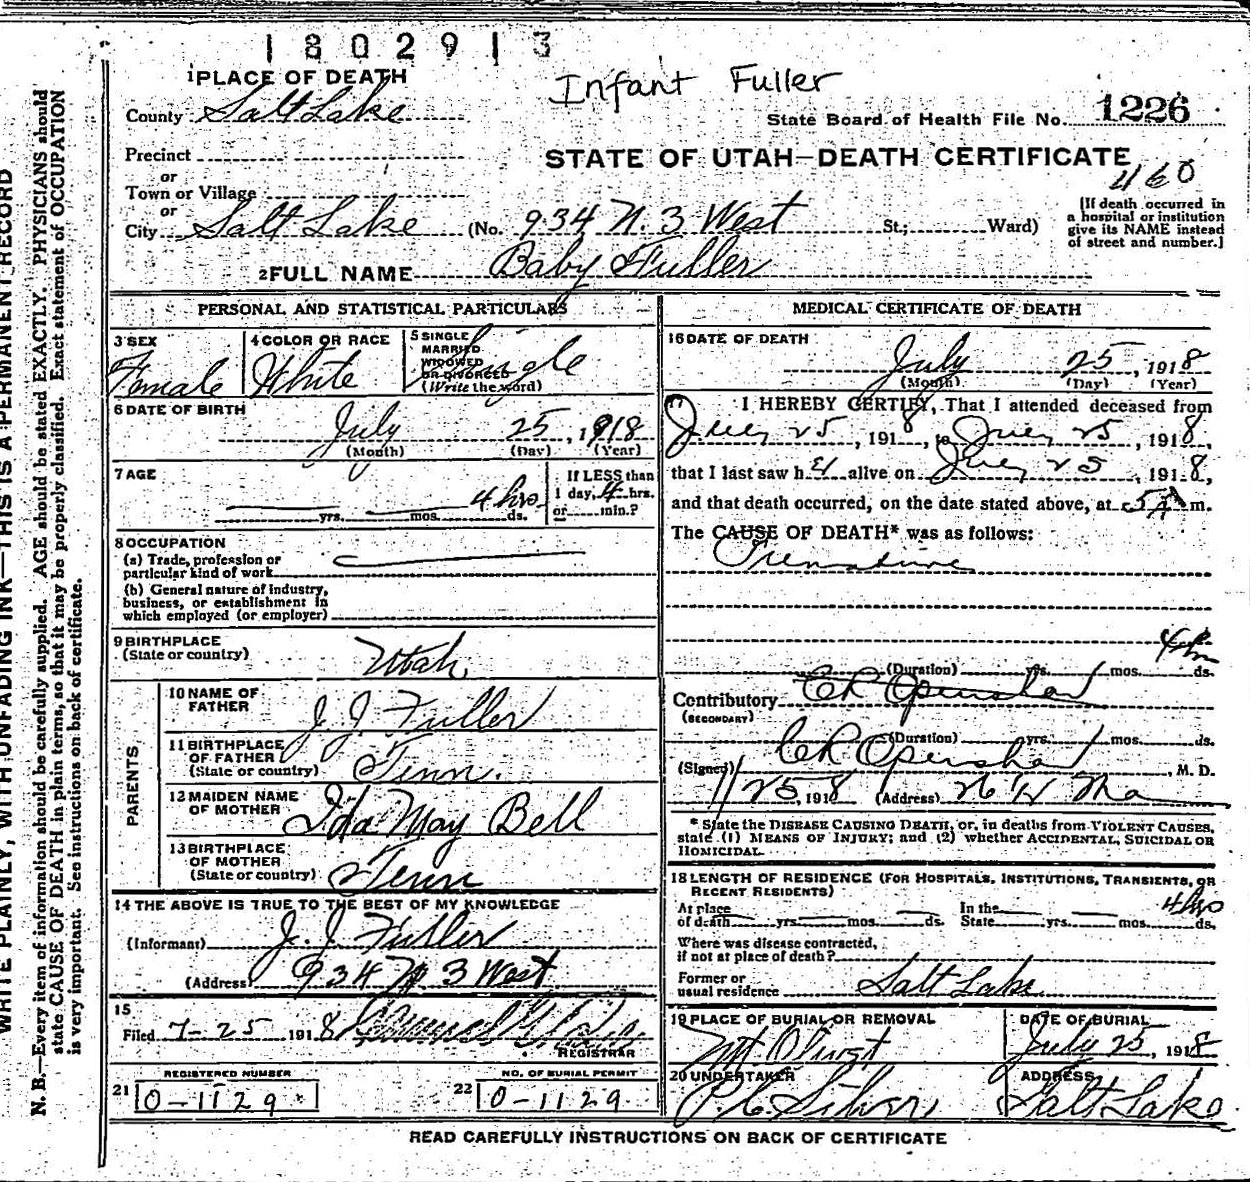 1802913
1 PLACE OF DEATH
Infant Fuller
County Salt Lake
State Board of Health File No. 1226
Precinct
STATE OF UTAH—DEATH CERTIFICATE
460
or
Town or Village
or
City Salt Lake (No. 934 N. 3 West St.; Ward)
[If death occurred in
a hospital or institution
give its NAME instead
of street and number.]
2 FULL NAME Baby Fuller
PERSONAL AND STATISTICAL PARTICULARS
3 SEX
Female
4 COLOR OR RACE
White
5 SINGLE
MARRIED
WIDOWED
OR DIVORCED
(Write the word)
Single
6 DATE OF BIRTH
July 25, 1918
(Month) (Day) (Year)
7 AGE
4 hrs.
yrs. mos. ds.
If LESS than
1 day, 4 hrs.
or min.?
8 OCCUPATION
(a) Trade, profession or
particular kind of work
(b) General nature of industry,
business, or establishment in
which employed (or employer)
9 BIRTHPLACE
(State or country)
Utah
PARENTS
10 NAME OF
FATHER
J. J. Fuller
11 BIRTHPLACE
OF FATHER
(State or country)
Tenn.
12 MAIDEN NAME
OF MOTHER
Ida May Bell
13 BIRTHPLACE
OF MOTHER
(State or country)
Tenn
14 THE ABOVE IS TRUE TO THE BEST OF MY KNOWLEDGE
(Informant) J. J. Fuller
(Address) 934 N. 3 West
15
Filed 7-25 1918
REGISTRAR
REGISTERED NUMBER
21 0-1129
NO. OF BURIAL PERMIT
22 0-1129
MEDICAL CERTIFICATE OF DEATH
16 DATE OF DEATH
July 25, 1918
(Month) (Day) (Year)
17 I HEREBY CERTIFY, That I attended deceased from
July 25, 1918, to July 25, 1918,
that I last saw her alive on July 25, 1918,
and that death occurred, on the date stated above, at 5 A m.
The CAUSE OF DEATH* was as follows:
Premature
4 hrs
(Duration) yrs. mos. ds.
Contributory C R Openshaw
(SECONDARY)
(Duration) yrs. mos. ds.
(Signed) C R Openshaw, M. D.
25, 1918 (Address)
* State the DISEASE CAUSING DEATH, or, in deaths from VIOLENT CAUSES,
state (1) MEANS OF INJURY; and (2) whether ACCIDENTAL, SUICIDAL OR
HOMICIDAL.
18 LENGTH OF RESIDENCE (FOR HOSPITALS, INSTITUTIONS, TRANSIENTS, OR
RECENT RESIDENTS)
At place
of death yrs. mos. ds.
In the
State yrs. mos. 4 hrs ds.
Where was disease contracted,
if not at place of death?
Former or
usual residence Salt Lake
19 PLACE OF BURIAL OR REMOVAL
Mt Olivet
DATE OF BURIAL
July 25, 1918
20 UNDERTAKER
Silver
ADDRESS
Salt Lake
READ CAREFULLY INSTRUCTIONS ON BACK OF CERTIFICATE
WRITE PLAINLY, WITH UNFADING INK—THIS IS A PERMANENT RECORD
N. B.—Every item of information should be carefully supplied. AGE should be stated EXACTLY. PHYSICIANS should
state CAUSE OF DEATH in plain terms, so that it may be properly classified. Exact statement of OCCUPATION
is very important. See instructions on back of certificate.